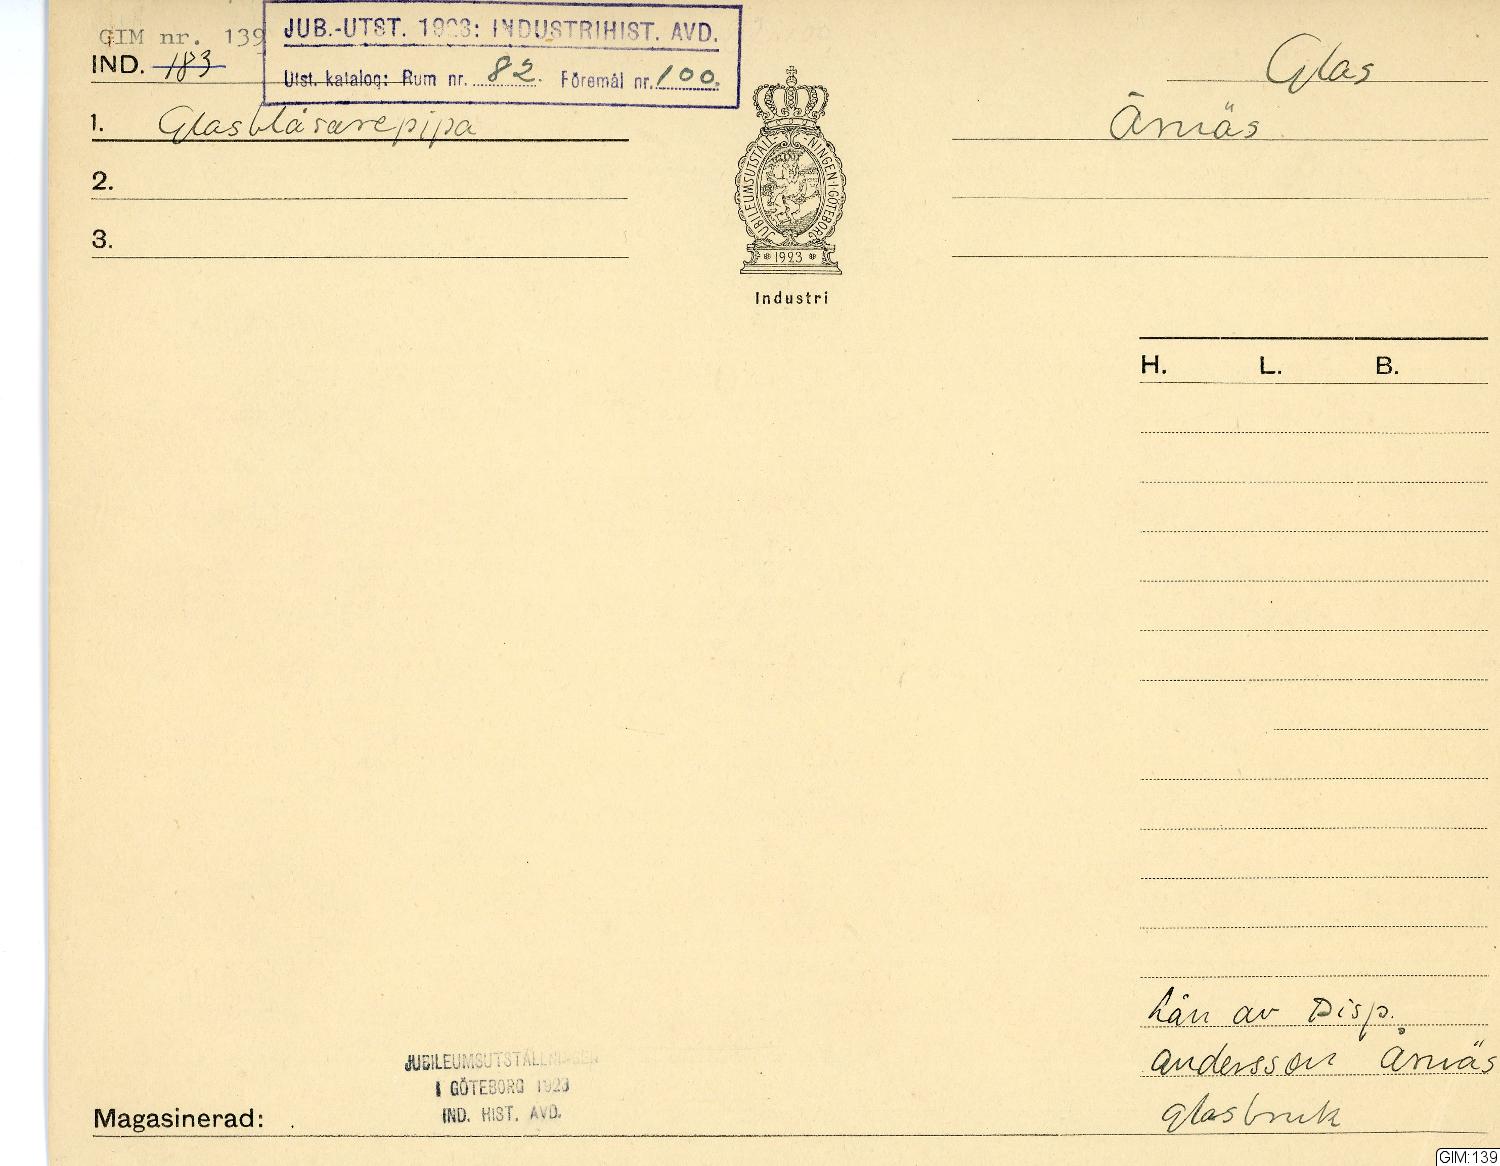 GIM nr. 139
JUB.-UTST. 1923: INDUSTRIHIST. AVD.
IND. 183
Utst. katalog: Rum nr. 82. Föremål nr. 100.
Glas
1. Glasblåsarepipa
Årnäs
2.
3.
JUBILEUMSUTSTÄLLNINGEN I GÖTEBORG
1923
Industri
H. L. B.
Lån av Disp.
Andersson Årnäs
glasbruk
JUBILEUMSUTSTÄLLNINGEN
I GÖTEBORG 1923
IND. HIST. AVD.
Magasinerad:
GIM:139